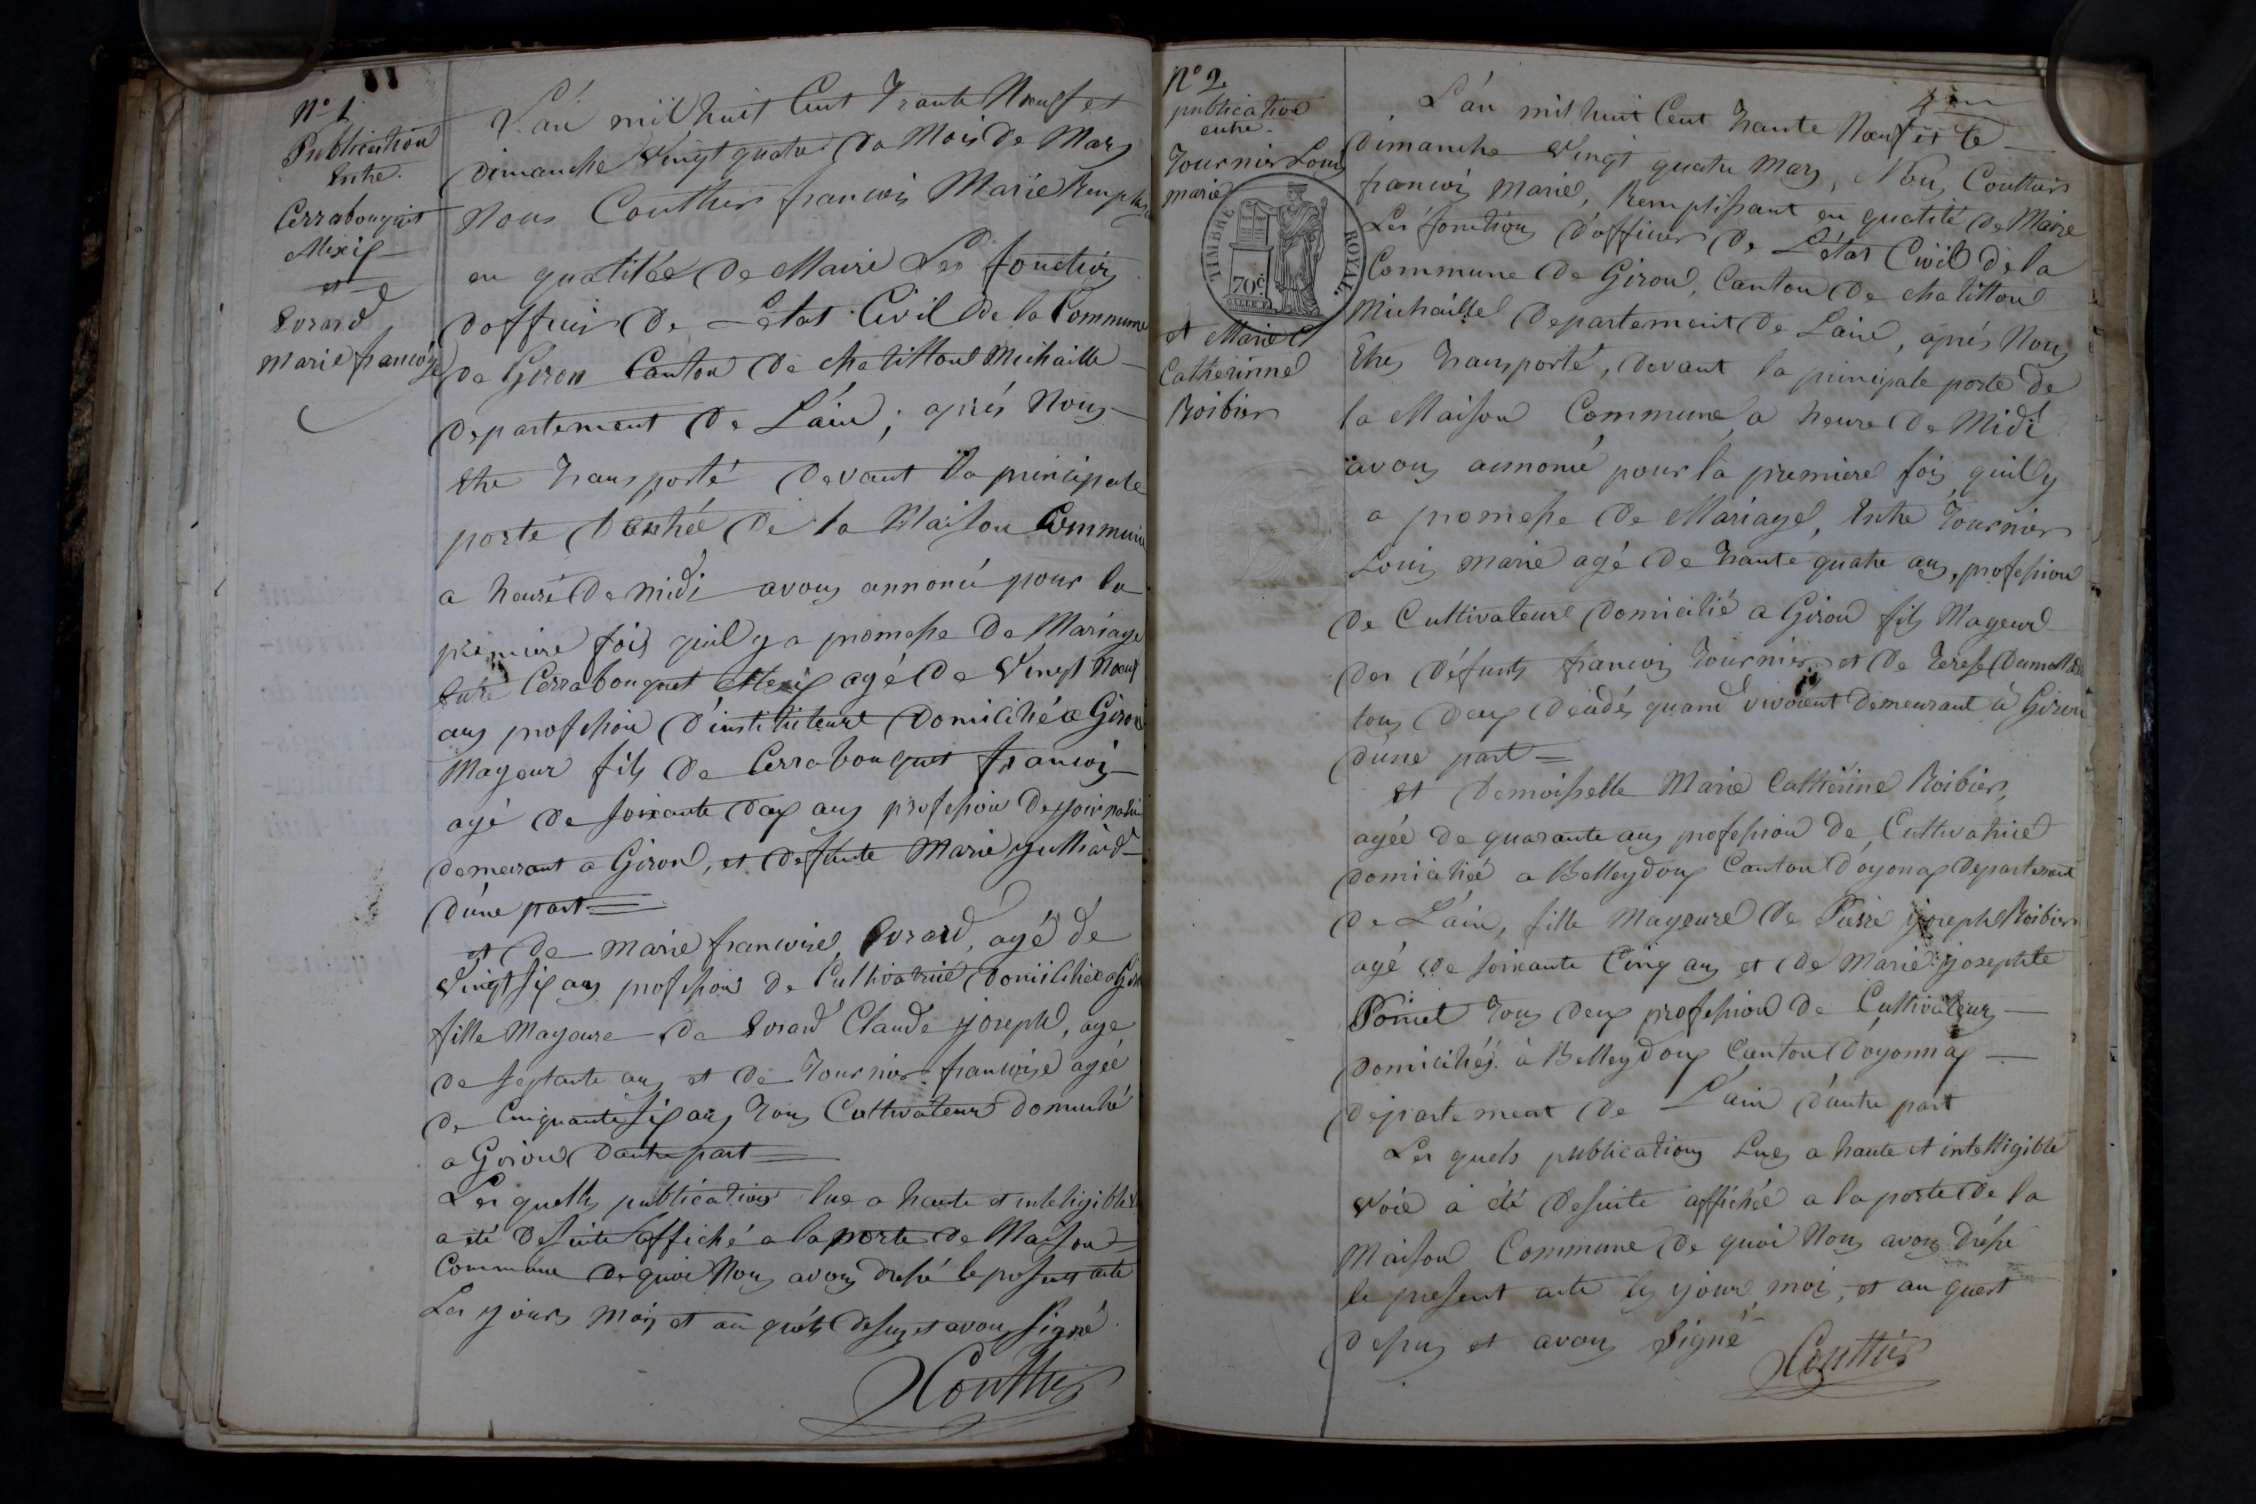 N° 1
Publication
Entre
Cerrabouquet
Alexis
et
Evrard
Marie francoise
L'an mil huit Cent Trante Neuf et
dimanche Vingt quatre Du Mois de Mars
Nous Couttier francois Marie
en qualitée De Maire Les fonctions
dofficier De Letat Civil de la Commune
De Giron Canton De chatillon Michaille
Departement De Láin, aprés Nous
Etre Transporté Devant la principale
porte De la Maison Commune
a heure De midi avons annoncé pour la
première fois quil y a promesse De Mariage
Entre Cerrabouquet Alexis agé De Vingt Neuf
ans profession D'instituteur Domicilié a Giron
Mageur fils De Cerrabouquet francois
agé De soixante Dex ans profession De journalier
demeurant a Giron, et Defunte Marie
D'une part =
et De Marie francoise Evrard, agé de
Vingt six ans profession De Cultivatrice Domicilié a Giron
fille Mageure De Evrard Claude joseph, age
De septante ans et De Tournier francoise ageé
De Cinquante six ans, Tous Cultivateurs Domicilié
a Giron D'autre part =
Les quelles publications lue a haute et inteligible
a été De suite affiché a la porte De Maison
Commune De quoi Nous avons dressé le present acte
Les jours Mois et an quels Dessus et avons Signé
Couttier
N° 2
publication
entre
Tournier Louis
marie
TIMBRE ROYAL
70c
et Marie
Catherinne
Roibier
L'an mil huit Cent Trante Neuf et le
dimanche Vingt quatre Mars, Nous Couttier
francois Marie, Remplissant en qualité De Maire
Les fonctions d'officier De L'état Civil de la
Commune De Giron, Canton De chatillon
Michaille Departement De Lain, aprés Nous
Etre Transporté, Devant la principale porte De
la Maison Commune, a heure De Midi
avons annoncé pour la premiere fois quil y
a promesse De Mariage, Entre Tournier
Louis Marie agé De Trante quatre ans, profession
De Cultivateur Domicilié a Giron fils Mageur
Des Défunts francois Tournier et De Terese
tous Deux décédés quand vivoient Demeurant à Giron
D'une part =
et Demoisselle Marie Catherine Roibier,
agée De quarante ans profession De Cultivatrice
Domiciliée a Belleydoux Canton D'oyonax Departement
De L'ain, fille Mageure De Pierre joseph Roibier
agé De soixante Cinq ans et De Marie josephte
Poncet Tous Deux profession De Cultivateurs
Domiciliés à Belleydoux Canton D'oyonnax
Departement De L'ain D'autre part
Les quels publications Lues a haute et intelligible
Voie a été De suite affichée a la porte De la
Maison Commune De quoi Nous avons dréssé
le present acte les jour, moi, et an quest
Dessus et avons Signé
Couttier